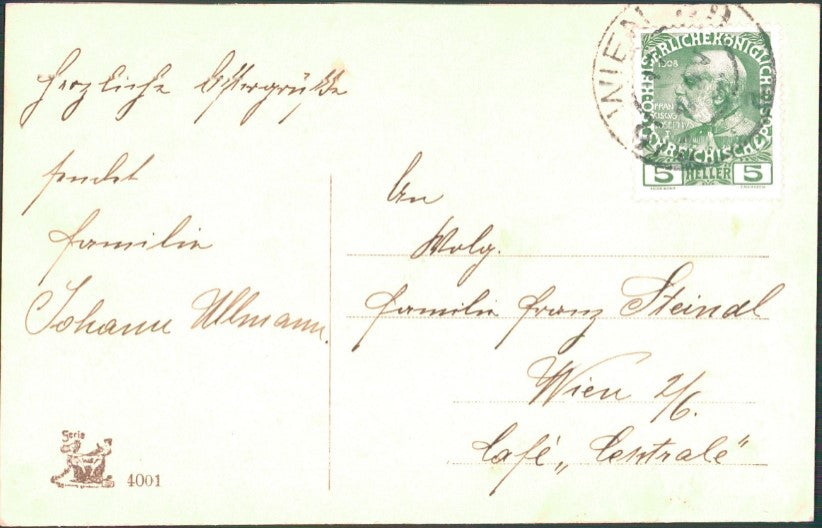 Herzliche Ostergrüße
sendet
Familie
Johann Ullmann.
Serie
4001
WIEN
KAISERLICHEKÖNIGLICHE
ÖSTERREICHISCHE POST
1908
FRANZ
JOSEF I
5 HELLER 5
An
Wolg.
Familie Franz Steindl
Wien 2/6.
Café „Centrale"